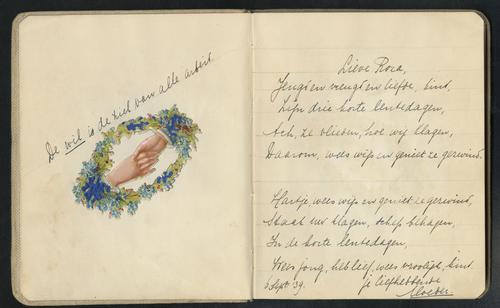 De wil is de ziel van alle arbeid.
Lieve Roza,
Jeugd en vreugd en liefde, kind,
Zijn drie korte lentedagen,
Ach, ze vlieden, hoe wij klagen,
Daarom, wees wijs en geniet ze gezwind.
Hartje, wees wijs en geniet ze gezwind,
Staak uw klagen, schep behagen,
In de korte lentedagen,
Wees jong, heb lief, wees vroolijk, kind.
6 Sept. 39.
je liefhebbende
Moeder.